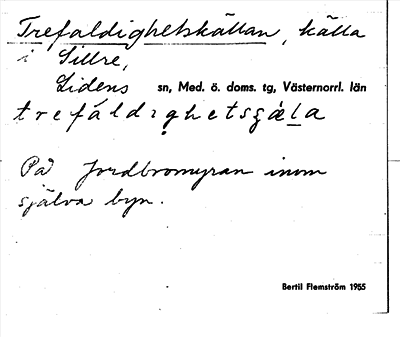 Trefaldighetskällan, källa
i Sillre,
Lidens sn, Med. ö. doms. tg, Västernorrl. län
trefáldıg̣hetsʂǽl̲a
På Jordbromyran inom
själva byn.
Bertil Flemström 1955